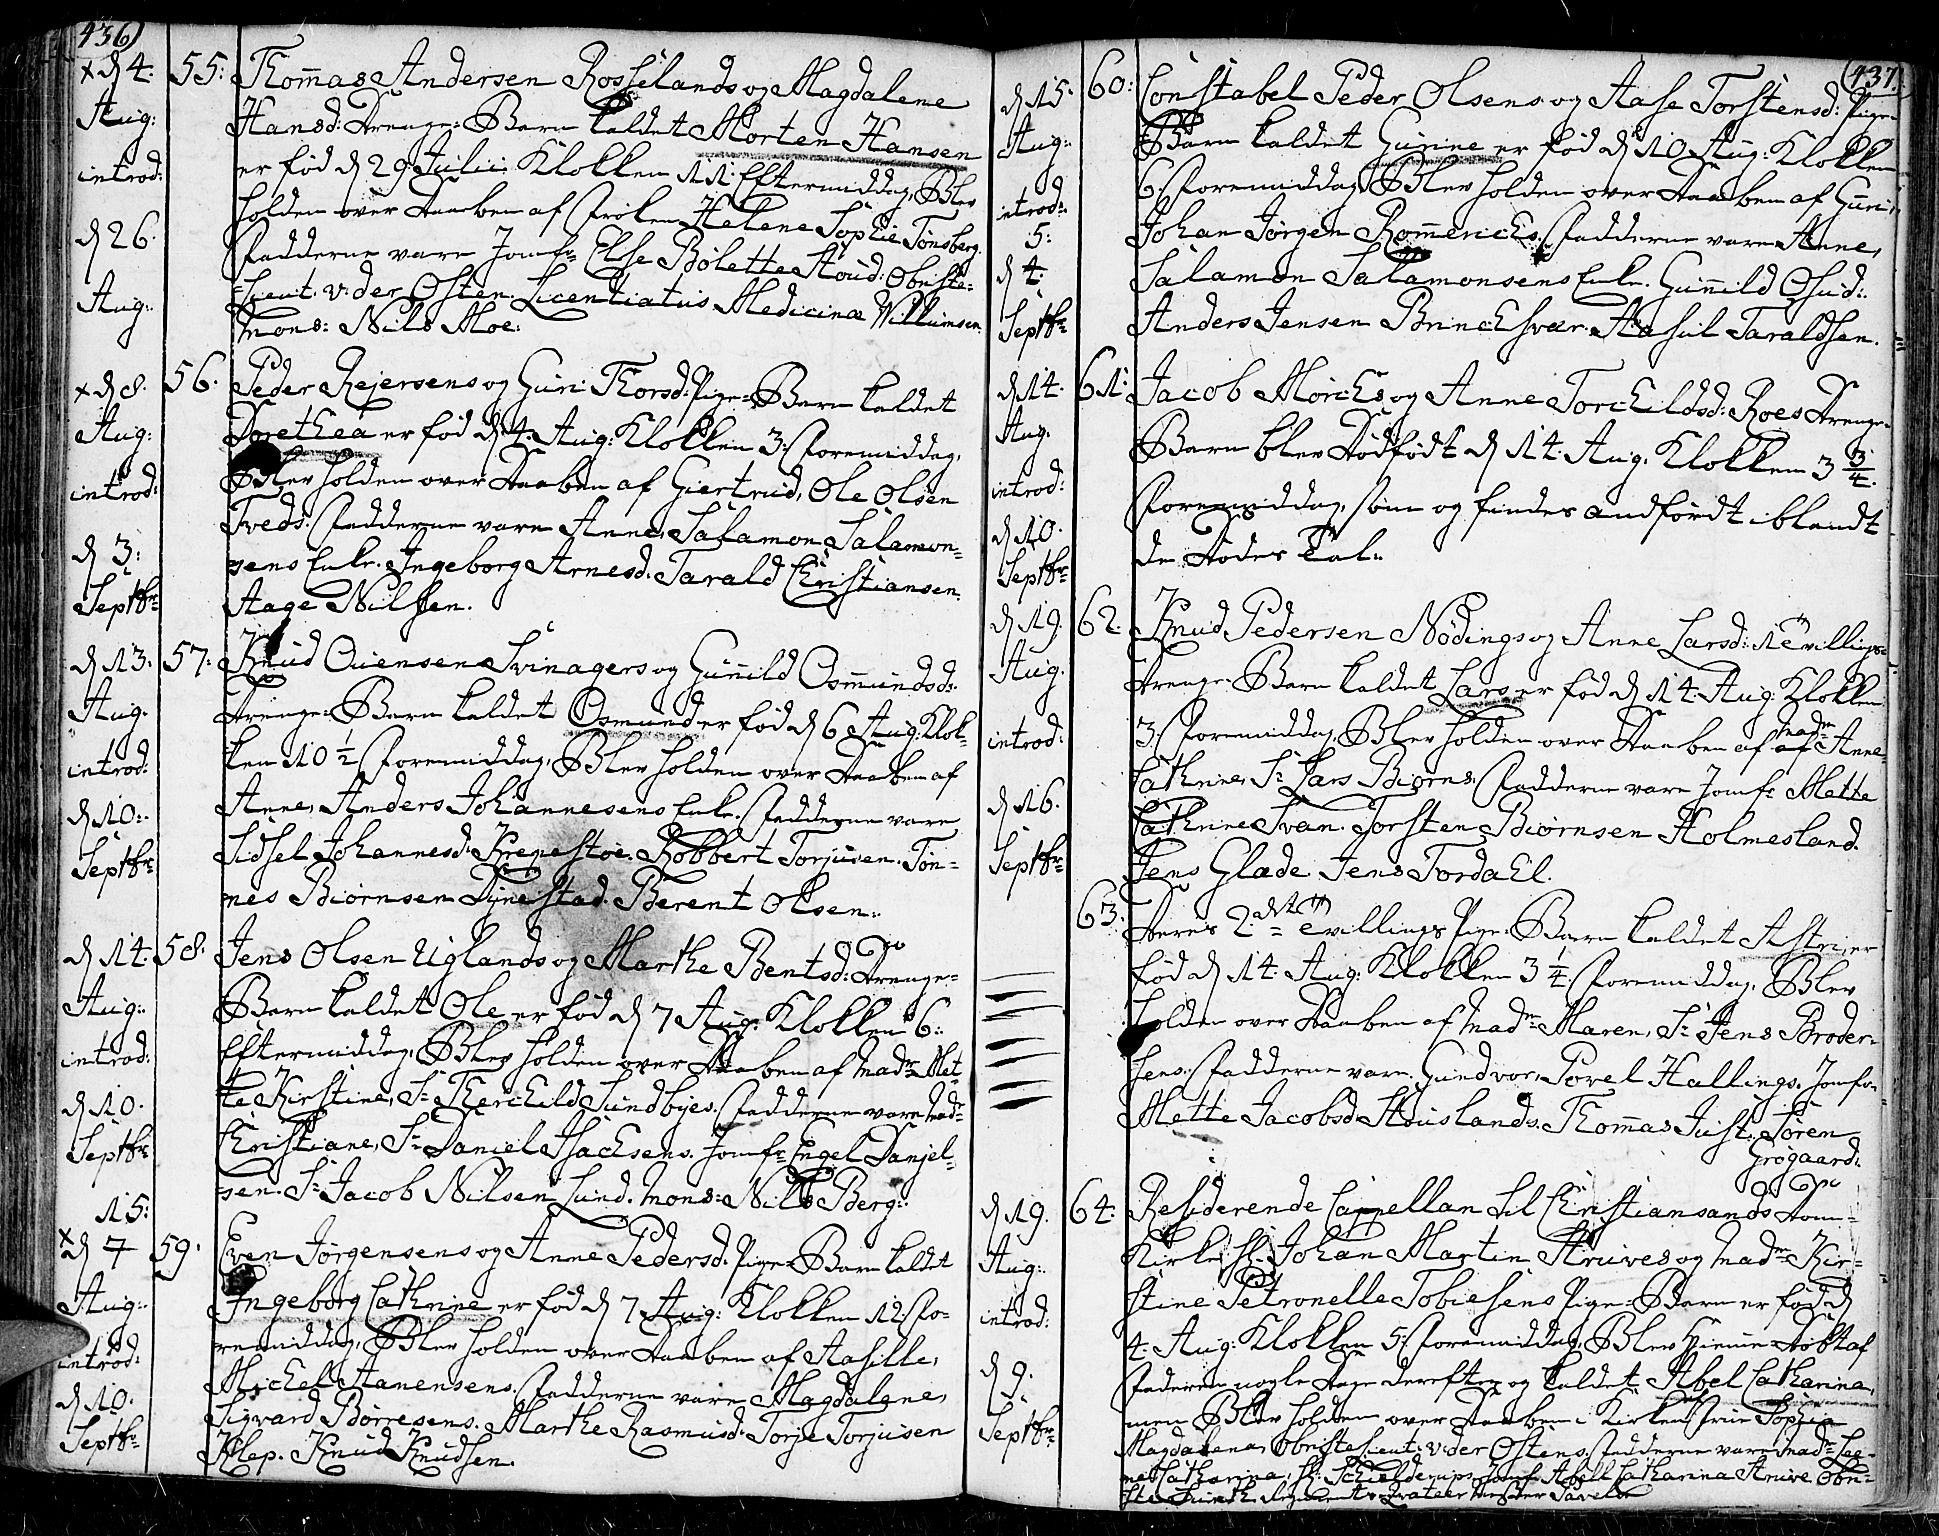 436
x d 4:
Aug:
introd:
d 26.
Aug:
55: Thommas Andersen Rosselands og Magdalene
Hansd: Drenge-Barn kaldet Morten Hansen
er fød d 29 Julii Klokken 11 Eftermiddag, Blev
holden over Daaben af Frøken Helene Sophie Tønsberg.
Fadderne vare Jomfr Else Bolette Stoud: Obriste-
Lieut: v: der Osten. Licentiatus Medicinæ Willumsen.
Mons: Nils Moe:
x d 8.
Aug:
introd:
d 3:
Septbr
56. Peder Rejersens og Guri Thorsd: Pige-Barn kaldet
Dorethea er fød d 4. Aug: Klokken 3: Formiddag,
Blev holden over Daaben af Giertrud, Ole Olsen
Tveds: Fadderne vare Anne, Salamon Salamon-
sens Enke. Ingeborg Arnesd. Tarald Christiansen.
Aage Nilssen.
d 13:
Aug.
introd:
d 10:
Septbr
57: Knud Ouensens Svinagers og Gunnild Osmundsd:
Drenge-Barn kaldet Osmund er fød d 6 Aug: Klok-
ken 10 1/2 Formiddag, Blev holden over Daaben af
Anne, Anders Johannesens Enke. Fadderne vare
Sidsel Johannesd: Krepestøe. Robbert Torjusen. Tøn-
nes Biørnsen Dynestad. Berent Olsen.
d 14:
Aug:
introd:
d 10.
Septbr
58. Jens Olsen Uglands og Marthe Bentsd: Drenge-
Barn kaldet Ole er fød d 7 Aug: Klokken 6:
Eftermiddag, Blev holden over Daaben af Madm Met-
te Kirstine, Sr Therchild Sundbyes. Fadderne vare Madm
Christiane, Sr Daniel Isachsens. Jomfr Engel Danjel-
sen. Sr Jacob Nilsen Lund. Mons: Nils Berg:
15:
x d 7
Aug:
introd:
d 10.
Septbr
59. Even Jørgensens og Anne Pedersd. Pige-Barn kaldet
Ingeborg Cathrine er fød d 7 Aug: Klokken 12 Fo-
remiddag, Blev holden over Daaben af Aasille,
Michel Aanensens. Fadderne vare Magdalene,
Sigvard Børresens. Marthe Rasmusd: Torje Torjusen
Klep. Knud Knudsen.
437.
d 15.
Aug:
introd:
5:
d 4:
Septbr
60: Constabel Peder Olsens og Aase Torstensd: Pige-
Barn kaldet Gurine er fød d 10 Aug: Klokken
6. Formiddag, Blev holden over Daaben af Guri,
Johan Jørgen Rommerichs. Fadderne vare Anne,
Salamon Salamonsens Enke. Gunnild Osud:
Anders Jensen Brinchsvær. Aasul Taraldsen.
d 14.
Aug.
introd:
d 10.
Septbr
61: Jacob Mørchs og Anne Torchildsd: Roes Drenge-
Barn blev Dødfødt d 14. Aug. Klokken 3 3/4.
Formiddag, som og findes andført iblandt
de Dødes Tal.
d 19.
Aug.
introd:
d 16.
Septbr
62. Knud Pedersen Nødings og Anne Larsd: 1e Tvillings-
Drenge-Barn kaldet Lars er fød d 14. Aug: Klokken
3. Formiddag, Blev holden over Daaben af Madm Anne
Cathrine, Sr Lars Biørns. Fadderne vare Jomfr Mette
Cathrine Svan. Torsten Biørnsen Holmesland.
Jens Glade. Jens Tordahl.
63. Deres 2det Tvillings Pige-Barn kaldet Astri, er
fød d 14. Aug: Klokken 3 1/4 Formiddag, Blev
holden over Daaben af Madm Maren, Sr Jens Broder-
sens. Fadderne vare Gundvor, Povel Hallings. Jomfr
Mette Jacobsd Stouslands. Thommas Just. Søren
Grogaard.
d 19.
Aug:
introd:
d 9.
Septbr
64. Residerende Cappellan til Christiansands Dom-
Kirke Hr Johan Martin Struves og Madm Kir-
stine Petronelle Tobiesens Pige-Barn er fød d
4. Aug: Klokken 5: Formiddag, Blev Hiemme Døbt af
Faderen nogle Dage derefter og kaldet Abel Catharina,
men Blev holden over Daaben i Kirken af Frue Sophia
Magdalena, Obriste Lieut: v: der Ostens. Fadderne vare Madm Lee-
ne Catharina, Hr Schielderups. Jomfr Abell Catharina Struve. Obri-